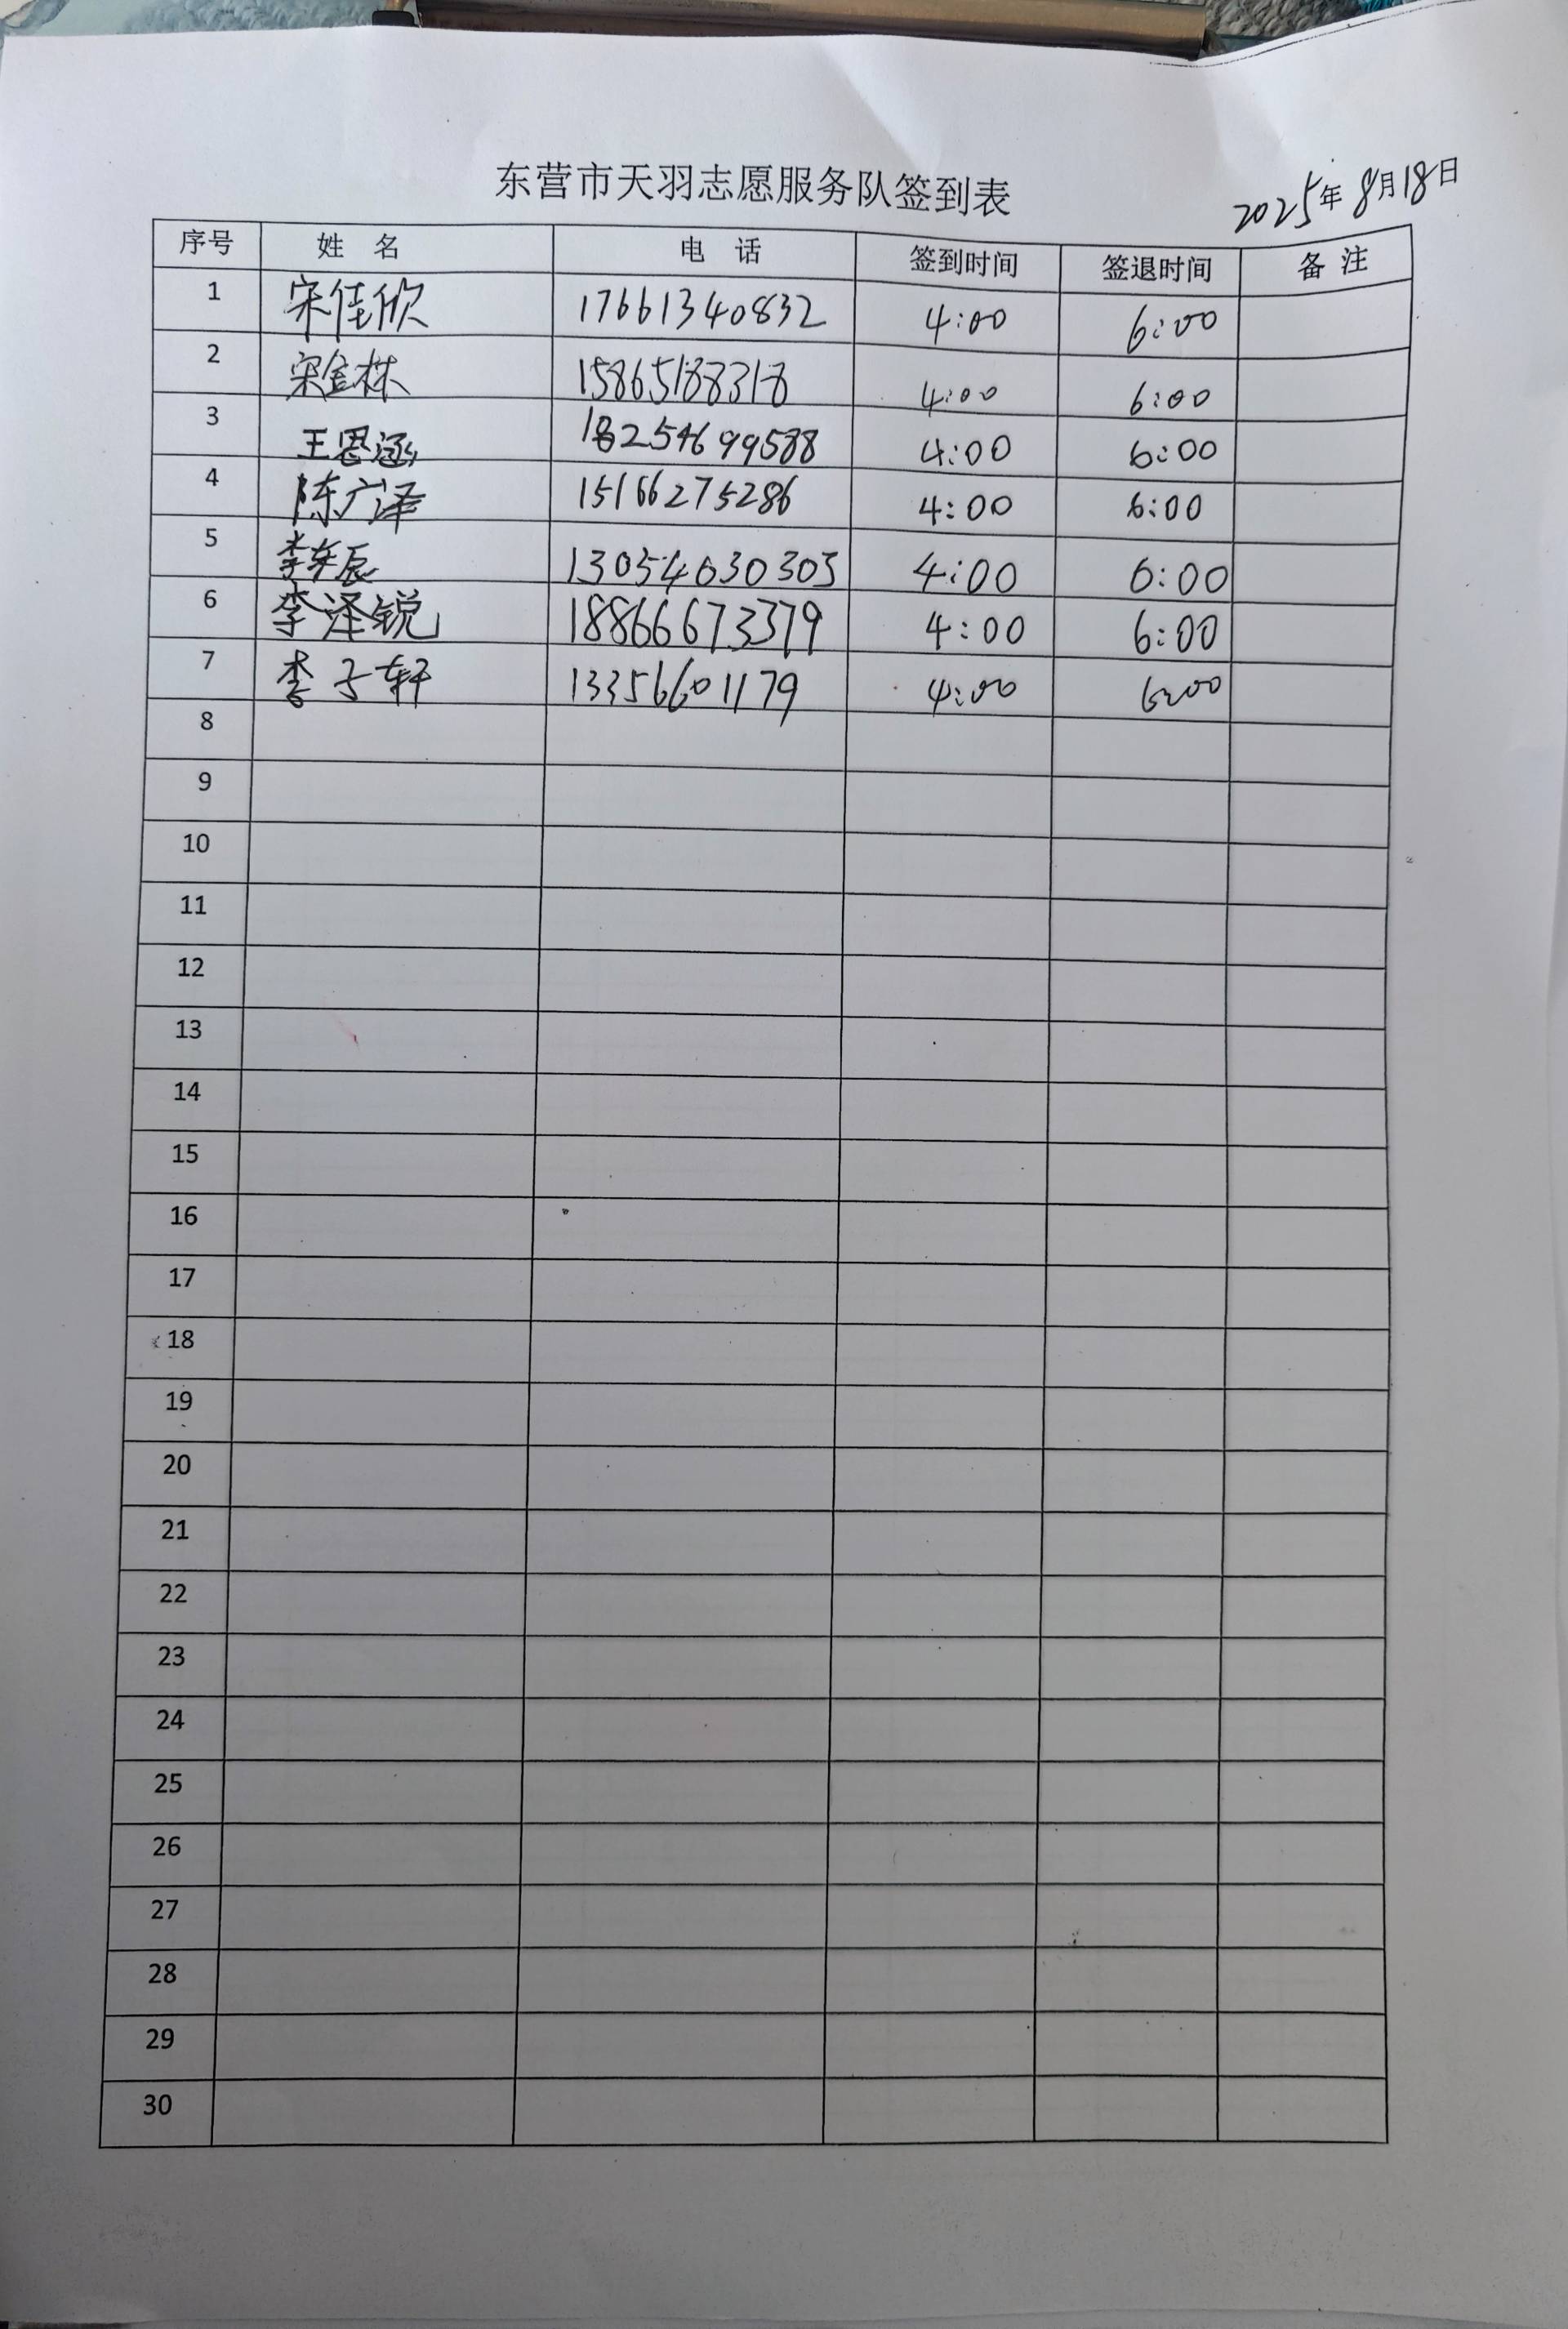 东营市天羽志愿服务队签到表
2025年8月18日
序号 姓 名 电 话 签到时间 签退时间 备 注
1 宋佳欣 17661340832 4:00 6:00
2 宋金林 15865188318 4:00 6:00
3 王恩涵 18254699588 4:00 6:00
4 陈广泽 15166275286 4:00 6:00
5 李东辰 13054630303 4:00 6:00
6 李泽锐 18866673379 4:00 6:00
7 李子轩 13356601179 4:00 6:00
8
9
10
11
12
13
14
15
16
17
18
19
20
21
22
23
24
25
26
27
28
29
30